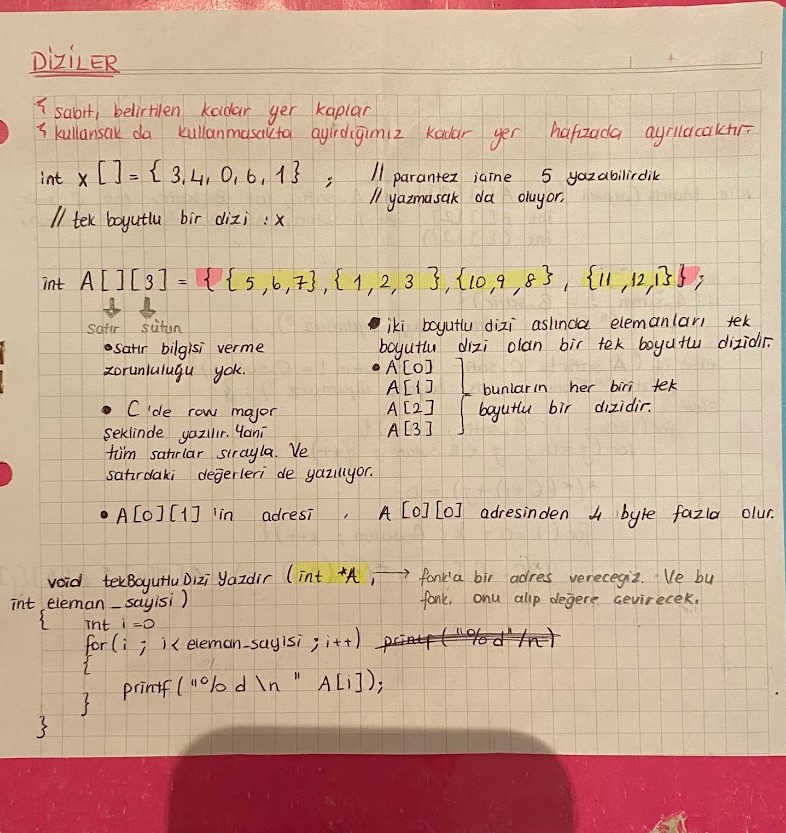 DİZİLER
sabit, belirtilen kadar yer kaplar
kullansak da kullanmasakta ayirdığımız kadar yer hafızada ayrılacaktır.
int x[] = { 3,4,0,6,1} ; // parantez içine 5 yazabilirdik
// yazmasak da oluyor.
// tek boyutlu bir dizi : x
int A[][3] = { { 5,6,7},{ 1,2,3 },{10,9,8} , {11,12,13} ;
satır sütun
• satır bilgisi verme
zorunluluğu yok.
• C'de row major
şeklinde yazılır. Yani
tüm satırlar sırayla. Ve
satırdaki değerleri de yazılıyor.
• iki boyutlu dizi aslında elemanları tek
boyutlu dizi olan bir tek boyutlu dizidir.
• A[0]
A[1]
A[2]
A[3]
bunların her biri tek
boyutlu bir dizidir.
• A[0][1] 'in adresi , A[0][0] adresinden 4 byte fazla olur.
void tekBoyutluDiziYazdir (int *A, → fonk'a bir adres vereceğiz. Ve bu
int eleman_sayisi) fonk. onu alıp değere çevirecek.
{ int i=0
for(i ; i< eleman_sayisi ; i++) printf("%d"/n)
{
printf("%d \n " A[i]);
}
}